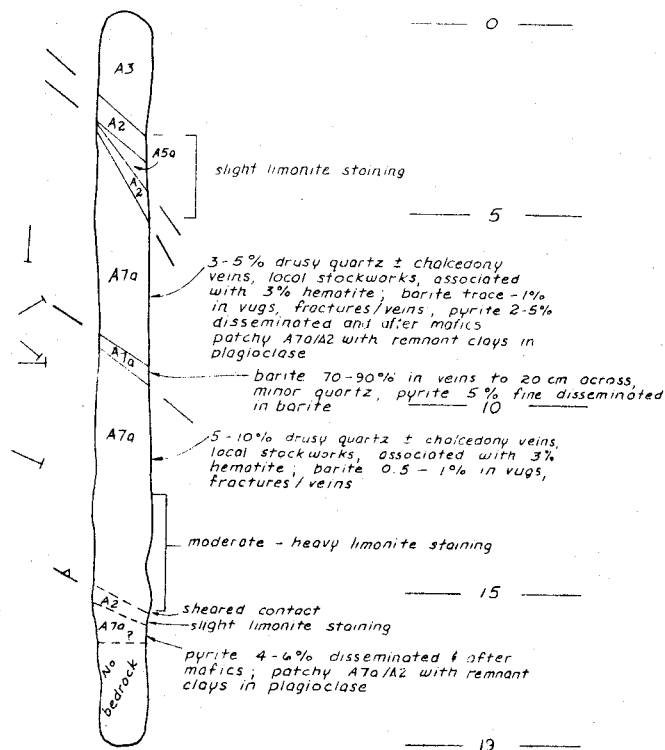 0
A3
A2
A5a
A2
slight limonite staining
5
A7a
3-5% drusy quartz ± chalcedony
veins, local stockworks, associated
with 3% hematite; barite trace-1%
in vugs, fractures/veins, pyrite 2-5%
disseminated and after mafics
patchy A7a/A2 with remnant clays in
plagioclase
A1a
barite 70-90% in veins to 20 cm across,
minor quartz, pyrite 5% fine disseminated
in barite
10
A7a
5-10% drusy quartz ± chalcedony veins,
local stockworks, associated with 3%
hematite; barite 0.5-1% in vugs,
fractures/veins
moderate - heavy limonite staining
15
A2
sheared contact
slight limonite staining
A7a ?
pyrite 4-6% disseminated & after
mafics; patchy A7a/A2 with remnant
clays in plagioclase
No
bedrock
19